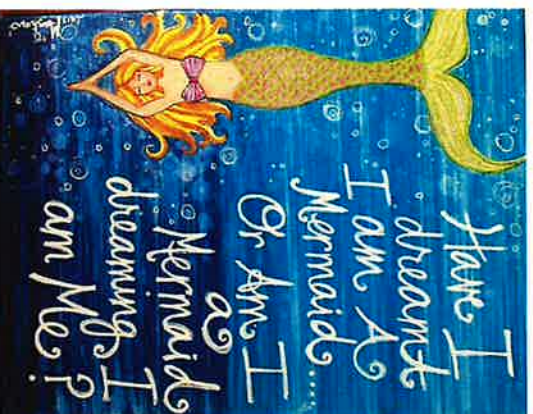 Have I
dreamt
I am A
Mermaid....
Or Am I
a
Mermaid
dreaming I
am Me?